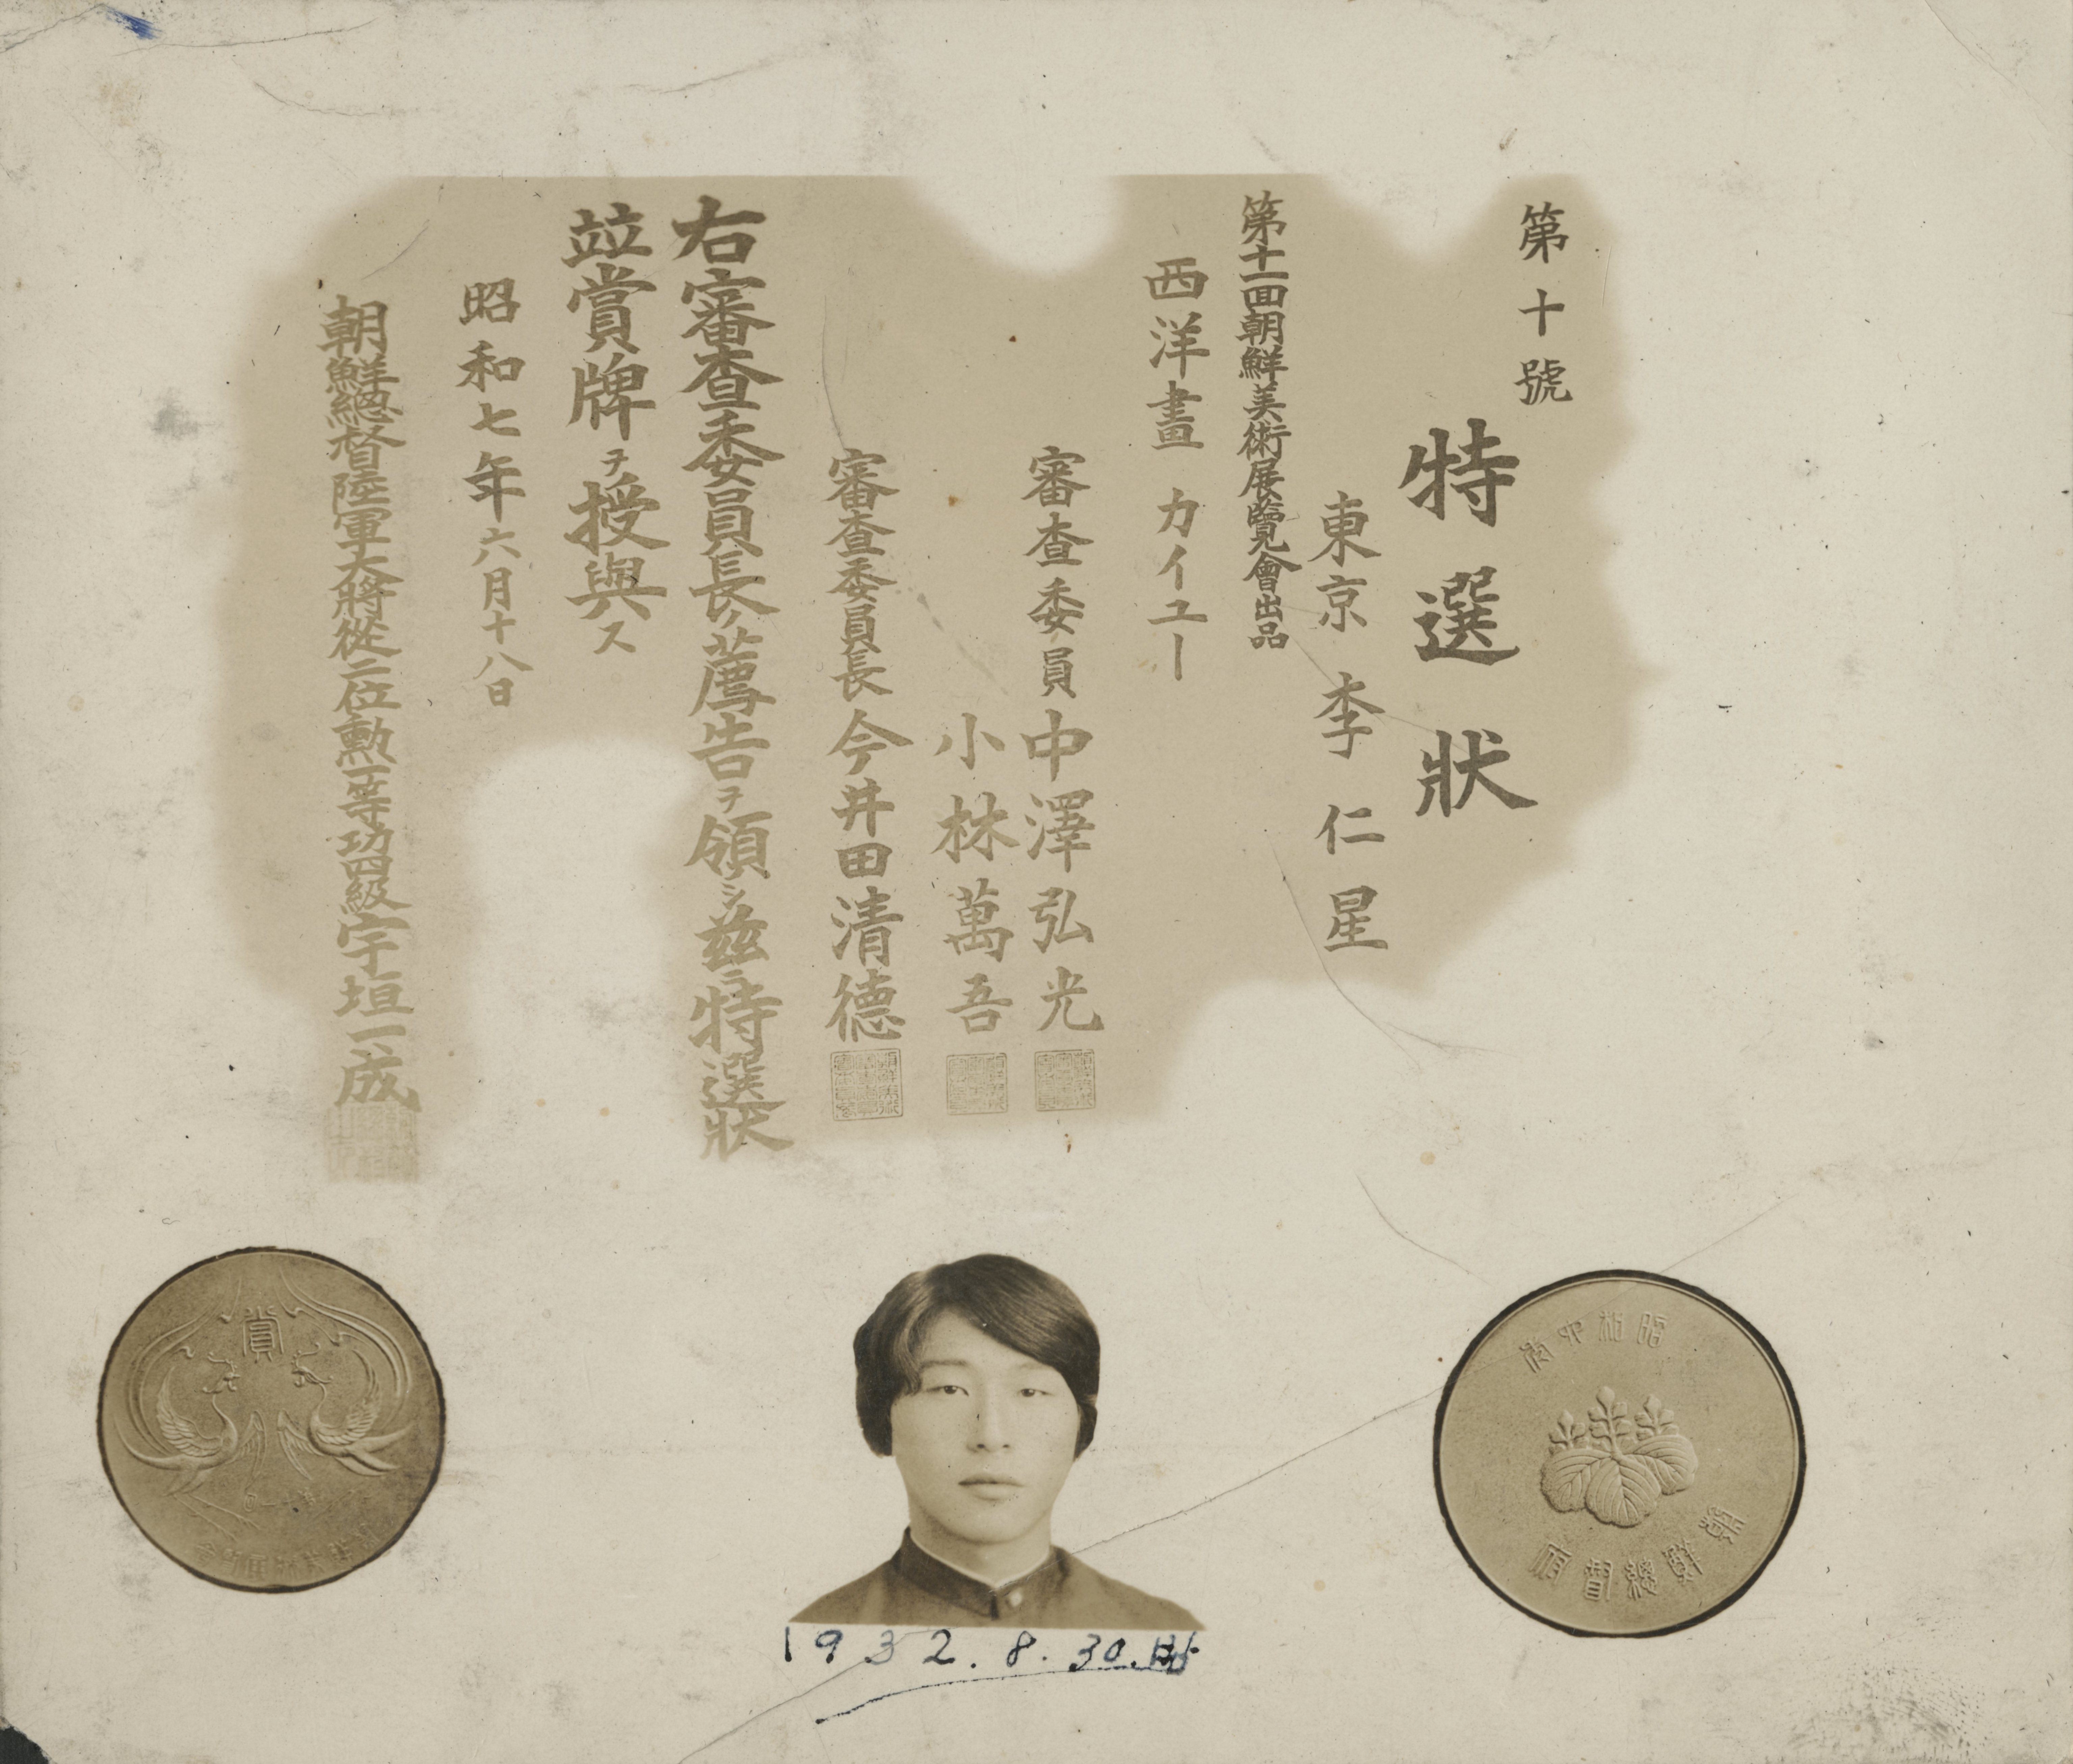 第十號
特選狀
東京 李仁星
第十一回朝鮮美術展覽會出品
西洋畫 カイユー
審査委員 中澤弘光
小林萬吾
審査委員長 今井田清德
右審査委員長ノ薦告ヲ領シ茲ニ特選狀
竝賞牌ヲ授與ス
昭和七年六月十八日
朝鮮總督陸軍大將從二位勳一等功四級宇垣一成
賞
昭和
朝鮮總督府
1932.8.30.